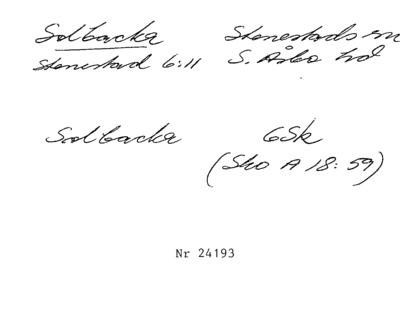 Solbacka Stenestads sn
Stenestad 6:11 S. Åsbo hd
Solbacka GSk
(Sko A 18:59)
Nr 24193